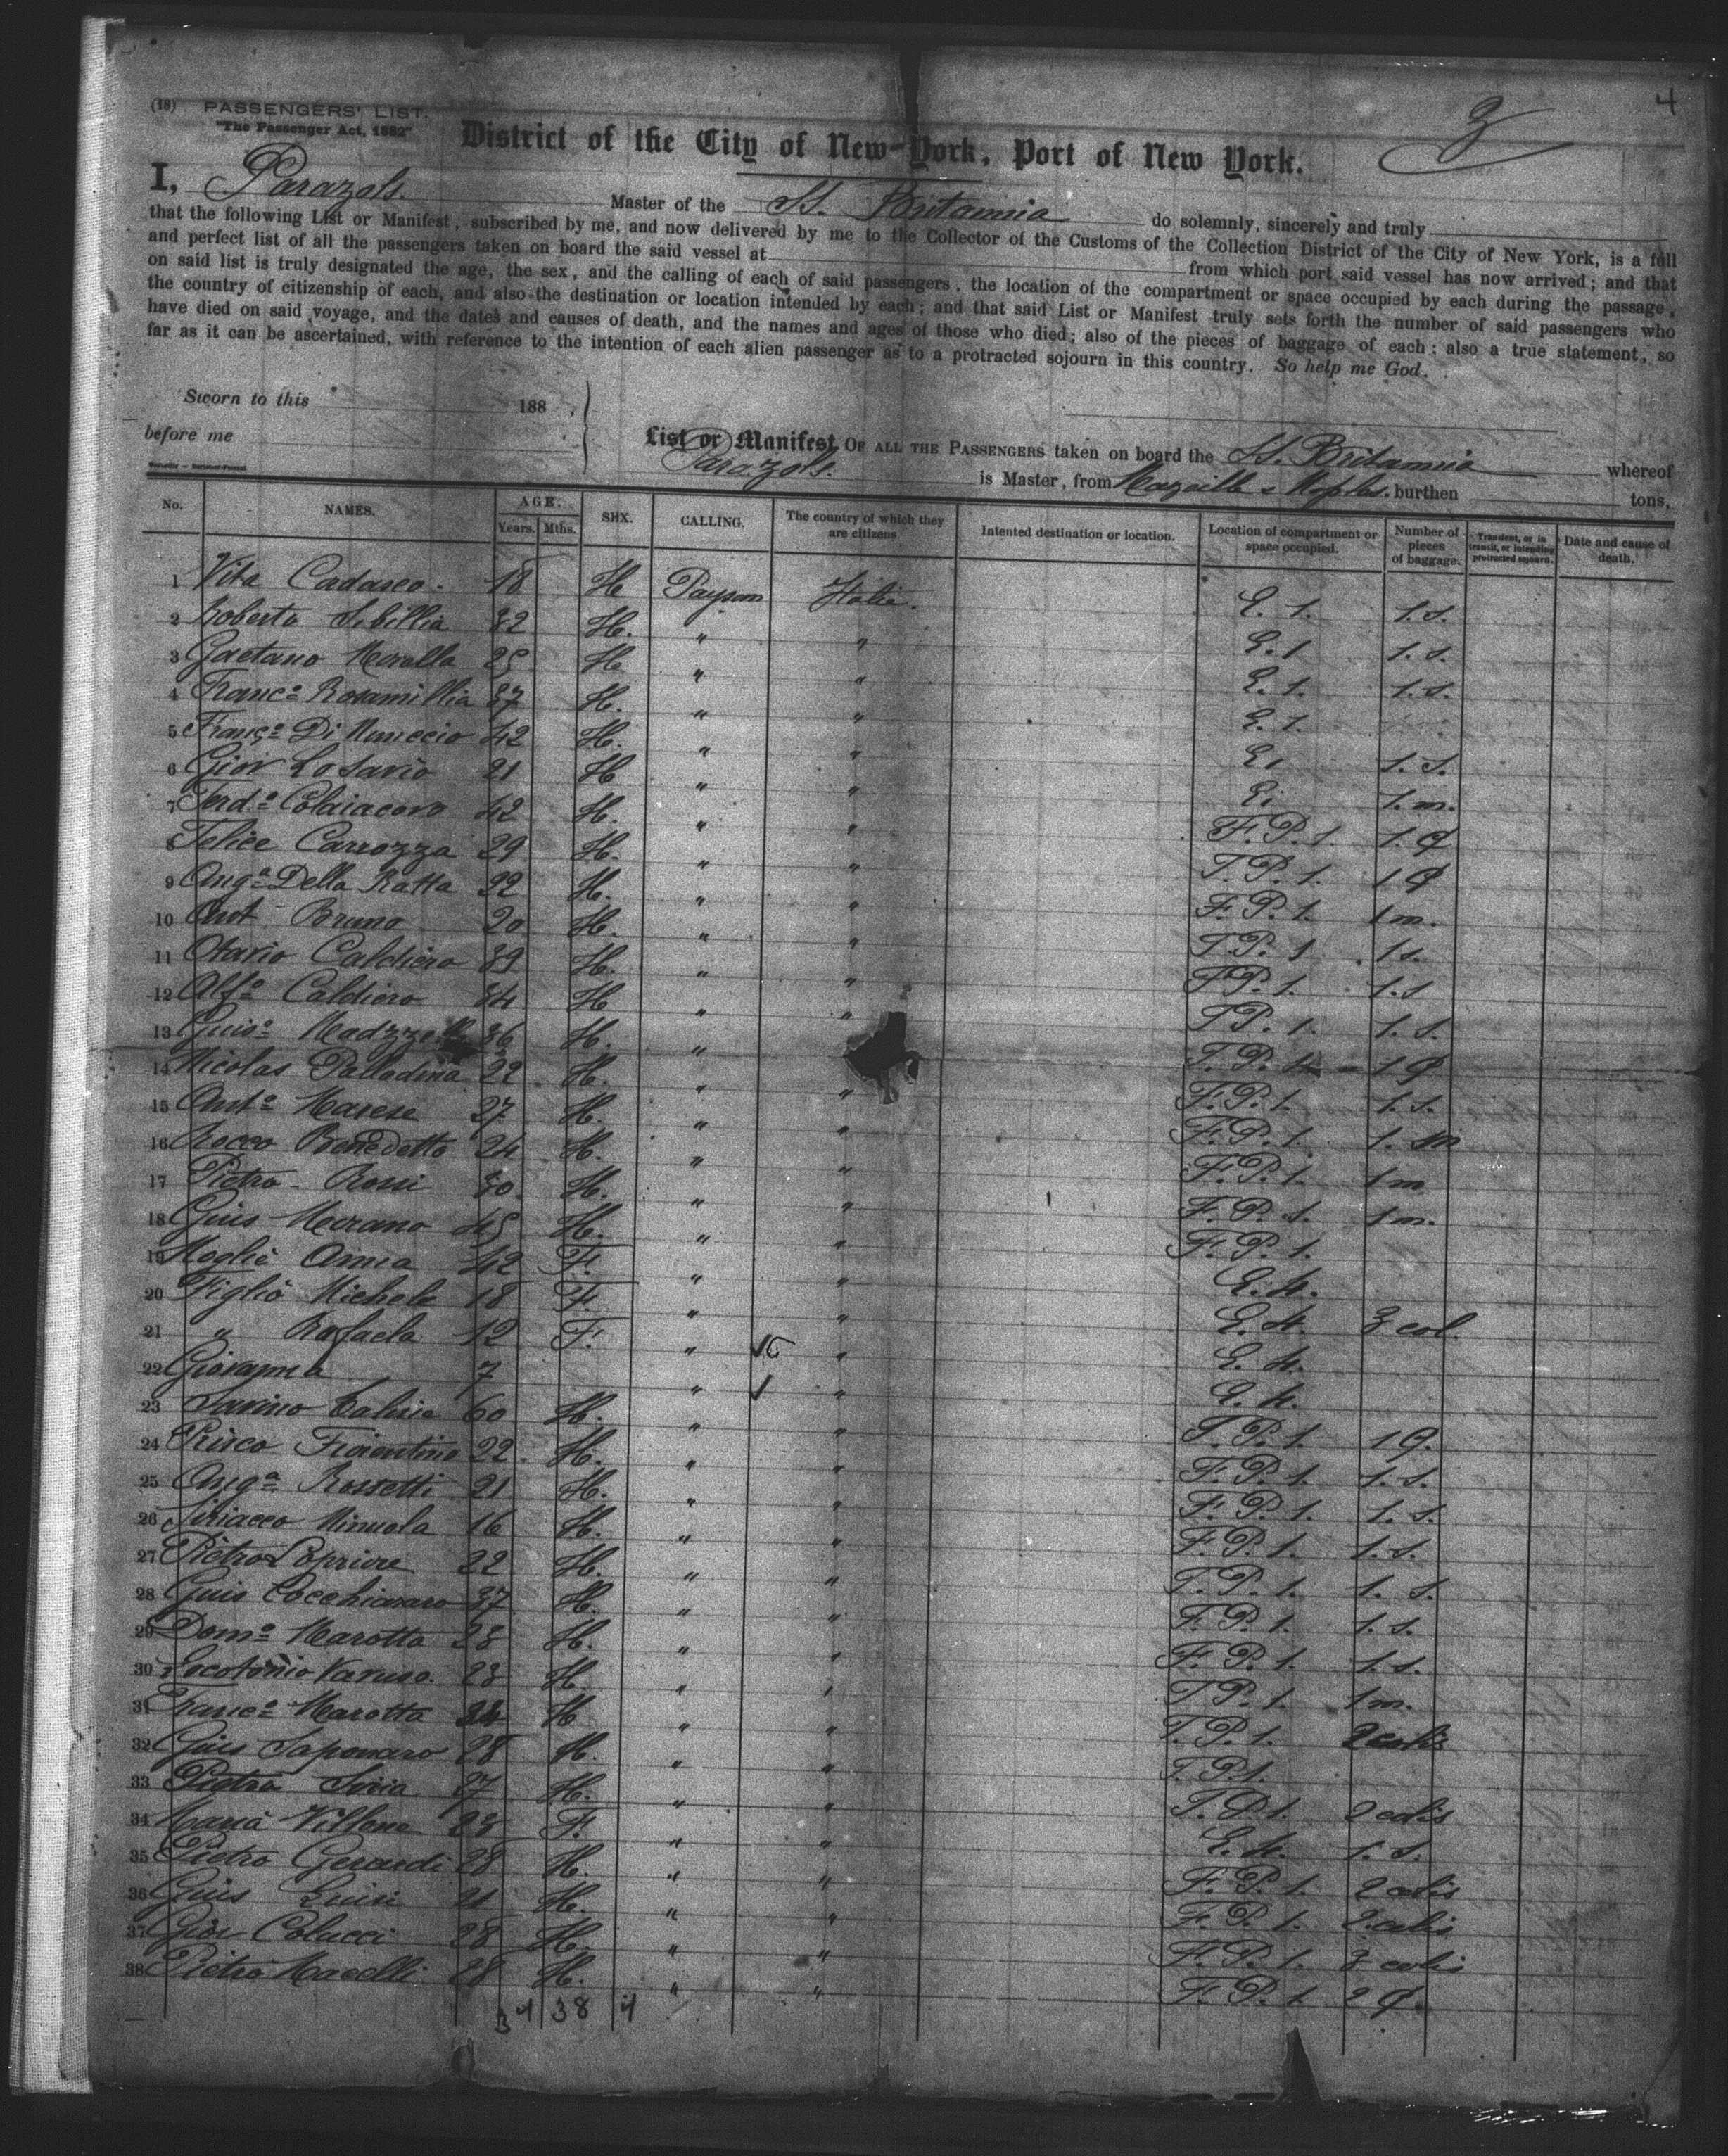 4
(18) PASSENGERS' LIST.
"The Passenger Act, 1882"
District of the City of New-York, Port of New York.
I, Parazols. Master of the SS. Britannia do solemnly, sincerely and truly
that the following List or Manifest, subscribed by me, and now delivered by me to the Collector of the Customs of the Collection District of the City of New York, is a full
and perfect list of all the passengers taken on board the said vessel at from which port said vessel has now arrived; and that
on said list is truly designated the age, the sex, and the calling of each of said passengers, the location of the compartment or space occupied by each during the passage,
the country of citizenship of each, and also the destination or location intended by each; and that said List or Manifest truly sets forth the number of said passengers who
have died on said voyage, and the dates and causes of death, and the names and ages of those who died; also of the pieces of baggage of each: also a true statement, so
far as it can be ascertained, with reference to the intention of each alien passenger as to a protracted sojourn in this country. So help me God.
Sworn to this 188
before me
List or Manifest OF ALL THE PASSENGERS taken on board the SS. Britannia whereof
Parazols. is Master, from Marseille & Naples. burthen tons,
No. NAMES. AGE. Years. Mths. SEX. CALLING. The country of which they are citizens Intented destination or location. Location of compartment or space occupied. Number of pieces of baggage. Transient, or in transit, or intending protracted sojourn. Date and cause of death.
1 Vita Cadasco. 18 H Paysan Italie. E. 1. 1. s.
2 Roberto Sibillia 32 H. " " E. 1 1. s.
3 Gaetano Morella 25 H " " E. 1. 1. s.
4 Franc° Rosamillia 37 H. " " E. 1.
5 Franç° Di Nunccio 42 H. " " E1 1. s.
6 Giov Lo Savio 21 H " " E1 1. m.
7 Ferd° Colaiacovo 42 H. " " F. P. 1. 1. Q
8 Felice Carrozza 29 H. " " F. P. 1. 1 Q
9 Ang° Della Ratta 22 H. " " F. P. 1. 1 m.
10 Ant Bruno 20 H. " " F. P. 1 1 s.
11 Otavio Caldiero 39 H. " " F. P. 1. 1. s
12 Alf° Caldiero 34 H " " F. P. 1. 1. s.
13 Guis° 36 H. " F. P. 1. 1 Q
14 Nicolas Palladina 22 H. " " F. P. 1. 1. s.
15 Ant° Marese 27 H. " " F. P. 1. 1. m
16 Rocco Benedetto 24 H. " " F. P. 1. 1 m
17 Pietro Rossi 30 H. " " F. P. 1. 1 m.
18 Guis Murano 45 H. " " F. P. 1.
19 Moglie Anna 42 F. " " E. 4.
20 Figlio Michele 18 F. " " E. 4. 3 col.
21 " Rafaela 12 F. " " E. 4.
22 Giovanna 7 " " E. 4.
23 Savino 60 H. " " F. P. 1. 1 Q.
24 Prisco Fiorentino 22. H. " " F. P. 1. 1. s.
25 Ang° Rossetti 21 H. " " F. P. 1. 1. s.
26 Siriacco Minuola 16 H. " " F. P. 1. 1. s.
27 Pietro Lopriore 22 H. " " F. P. 1. 1. s.
28 Guis Cocchiararo 37 H. " " F. P. 1. 1. s.
29 Dom° Marotta 23 H. " " F. P. 1. 1. s.
30 Locotonio Varuso. 23 H. " " F. P. 1. 1 m.
31 Franc° Marotta 24 H " " F. P. 1. 2 colis
32 Guis Saponaro 28 H. " " F. P. 1.
33 Pietro 27 H. " " F. P. 1. 2 colis
34 Maria Villone 23 F. " " E. 4. 1. s.
35 Pietro Gerardi 28 H. " " F. P. 1. 2 colis
36 Guis Luisi 21 H. " " F. P. 1. 2 colis
37 Giov Colucci 28 H. " " F. P. 1. 3 colis
38 Pietro Macelli 28 H. " " F. P. 1. 2 Q.
34 38 4